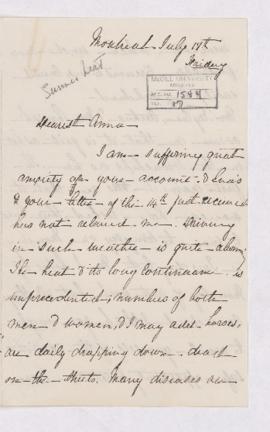 Montreal July 17th
Friday
Summer heat
McGILL UNIVERSITY
ARCHIVES
ACC. NO. 1544
REF. 17
Dearest Anna
I am suffering great
anxiety on your account. &
& your letter of the 14th just received
has not relieved me. Driving
in such weather is quite
The heat & its long continuance is
unprecedented; numbers of both
men & women, & I may add horses,
are daily dropping down dead
on the streets. Many diseases are